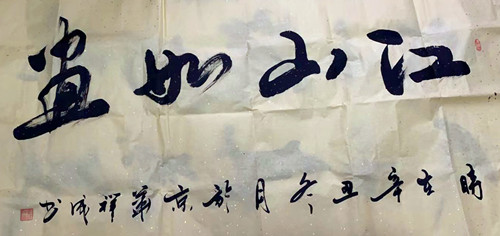 江山如画
时在辛丑冬月於京华祥成书